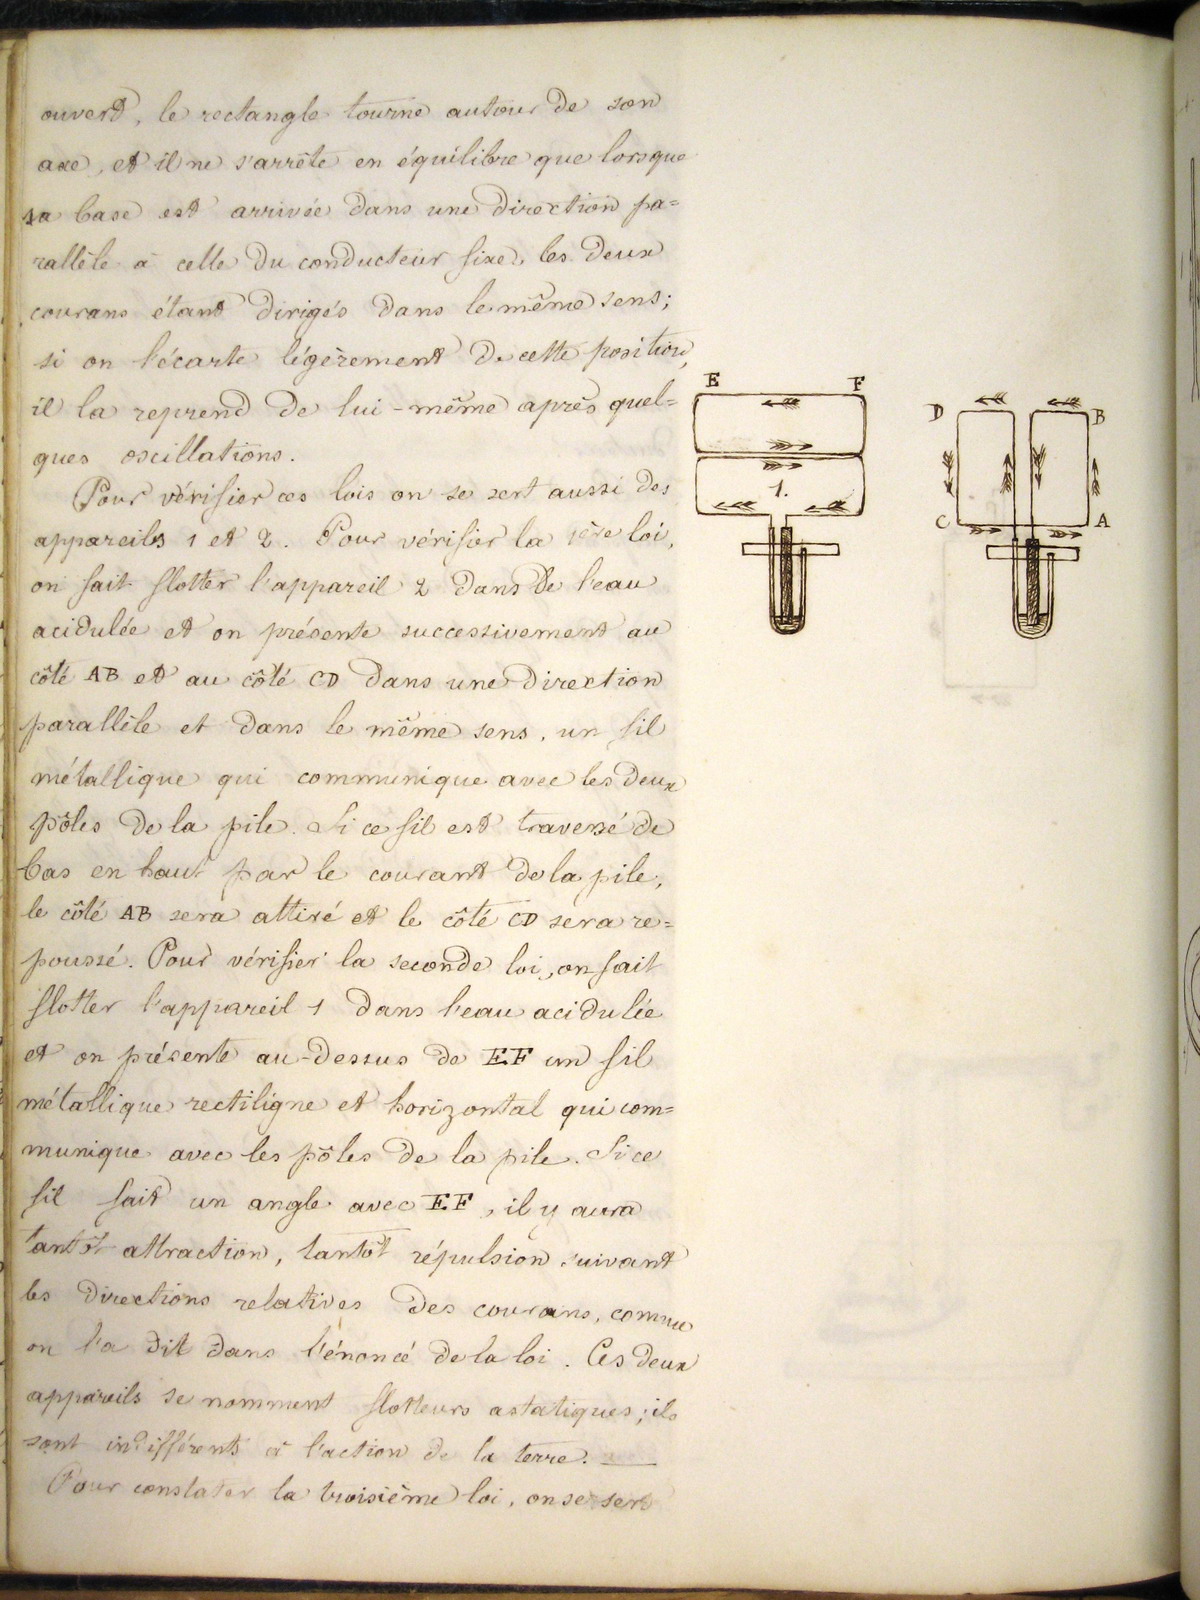 ouvert, le rectangle tourne autour de son
axe, et il ne s'arrête en équilibre que lorsque
sa base est arrivée dans une direction pa=
rallèle à celle du conducteur fixe, les deux
courans étant dirigés dans le même sens;
si on l'écarte légèrement de cette position,
il la reprend de lui-même après quel=
ques oscillations.
Pour vérifier ces lois on se sert aussi des
appareils 1 et 2. Pour vérifier la 1ère loi,
on fait flotter l'appareil 2 dans de l'eau
acidulée et on présente successivement au
côté AB et au côté CD dans une direction
parallèle et dans le même sens, un fil
métallique qui communique avec les deux
pôles de la pile. Si ce fil est traversé de
bas en haut par le courant de la pile,
le côté AB sera attiré et le côté CD sera re=
poussé. Pour vérifier la seconde loi, on fait
flotter l'appareil 1 dans l'eau acidulée
et on présente au-dessus de EF un fil
métallique rectiligne et horizontal qui com=
munique avec les pôles de la pile. Si ce
fil fait un angle avec EF, il y aura
tantôt attraction, tantôt répulsion suivant
les directions relatives des courans, comme
on l'a dit dans l'énoncé de la loi. Ces deux
appareils se nomment flotteurs astatiques; ils
sont indifférents à l'action de la terre.
Pour constater la troisième loi, on se sert
E F
1.
D B
C A